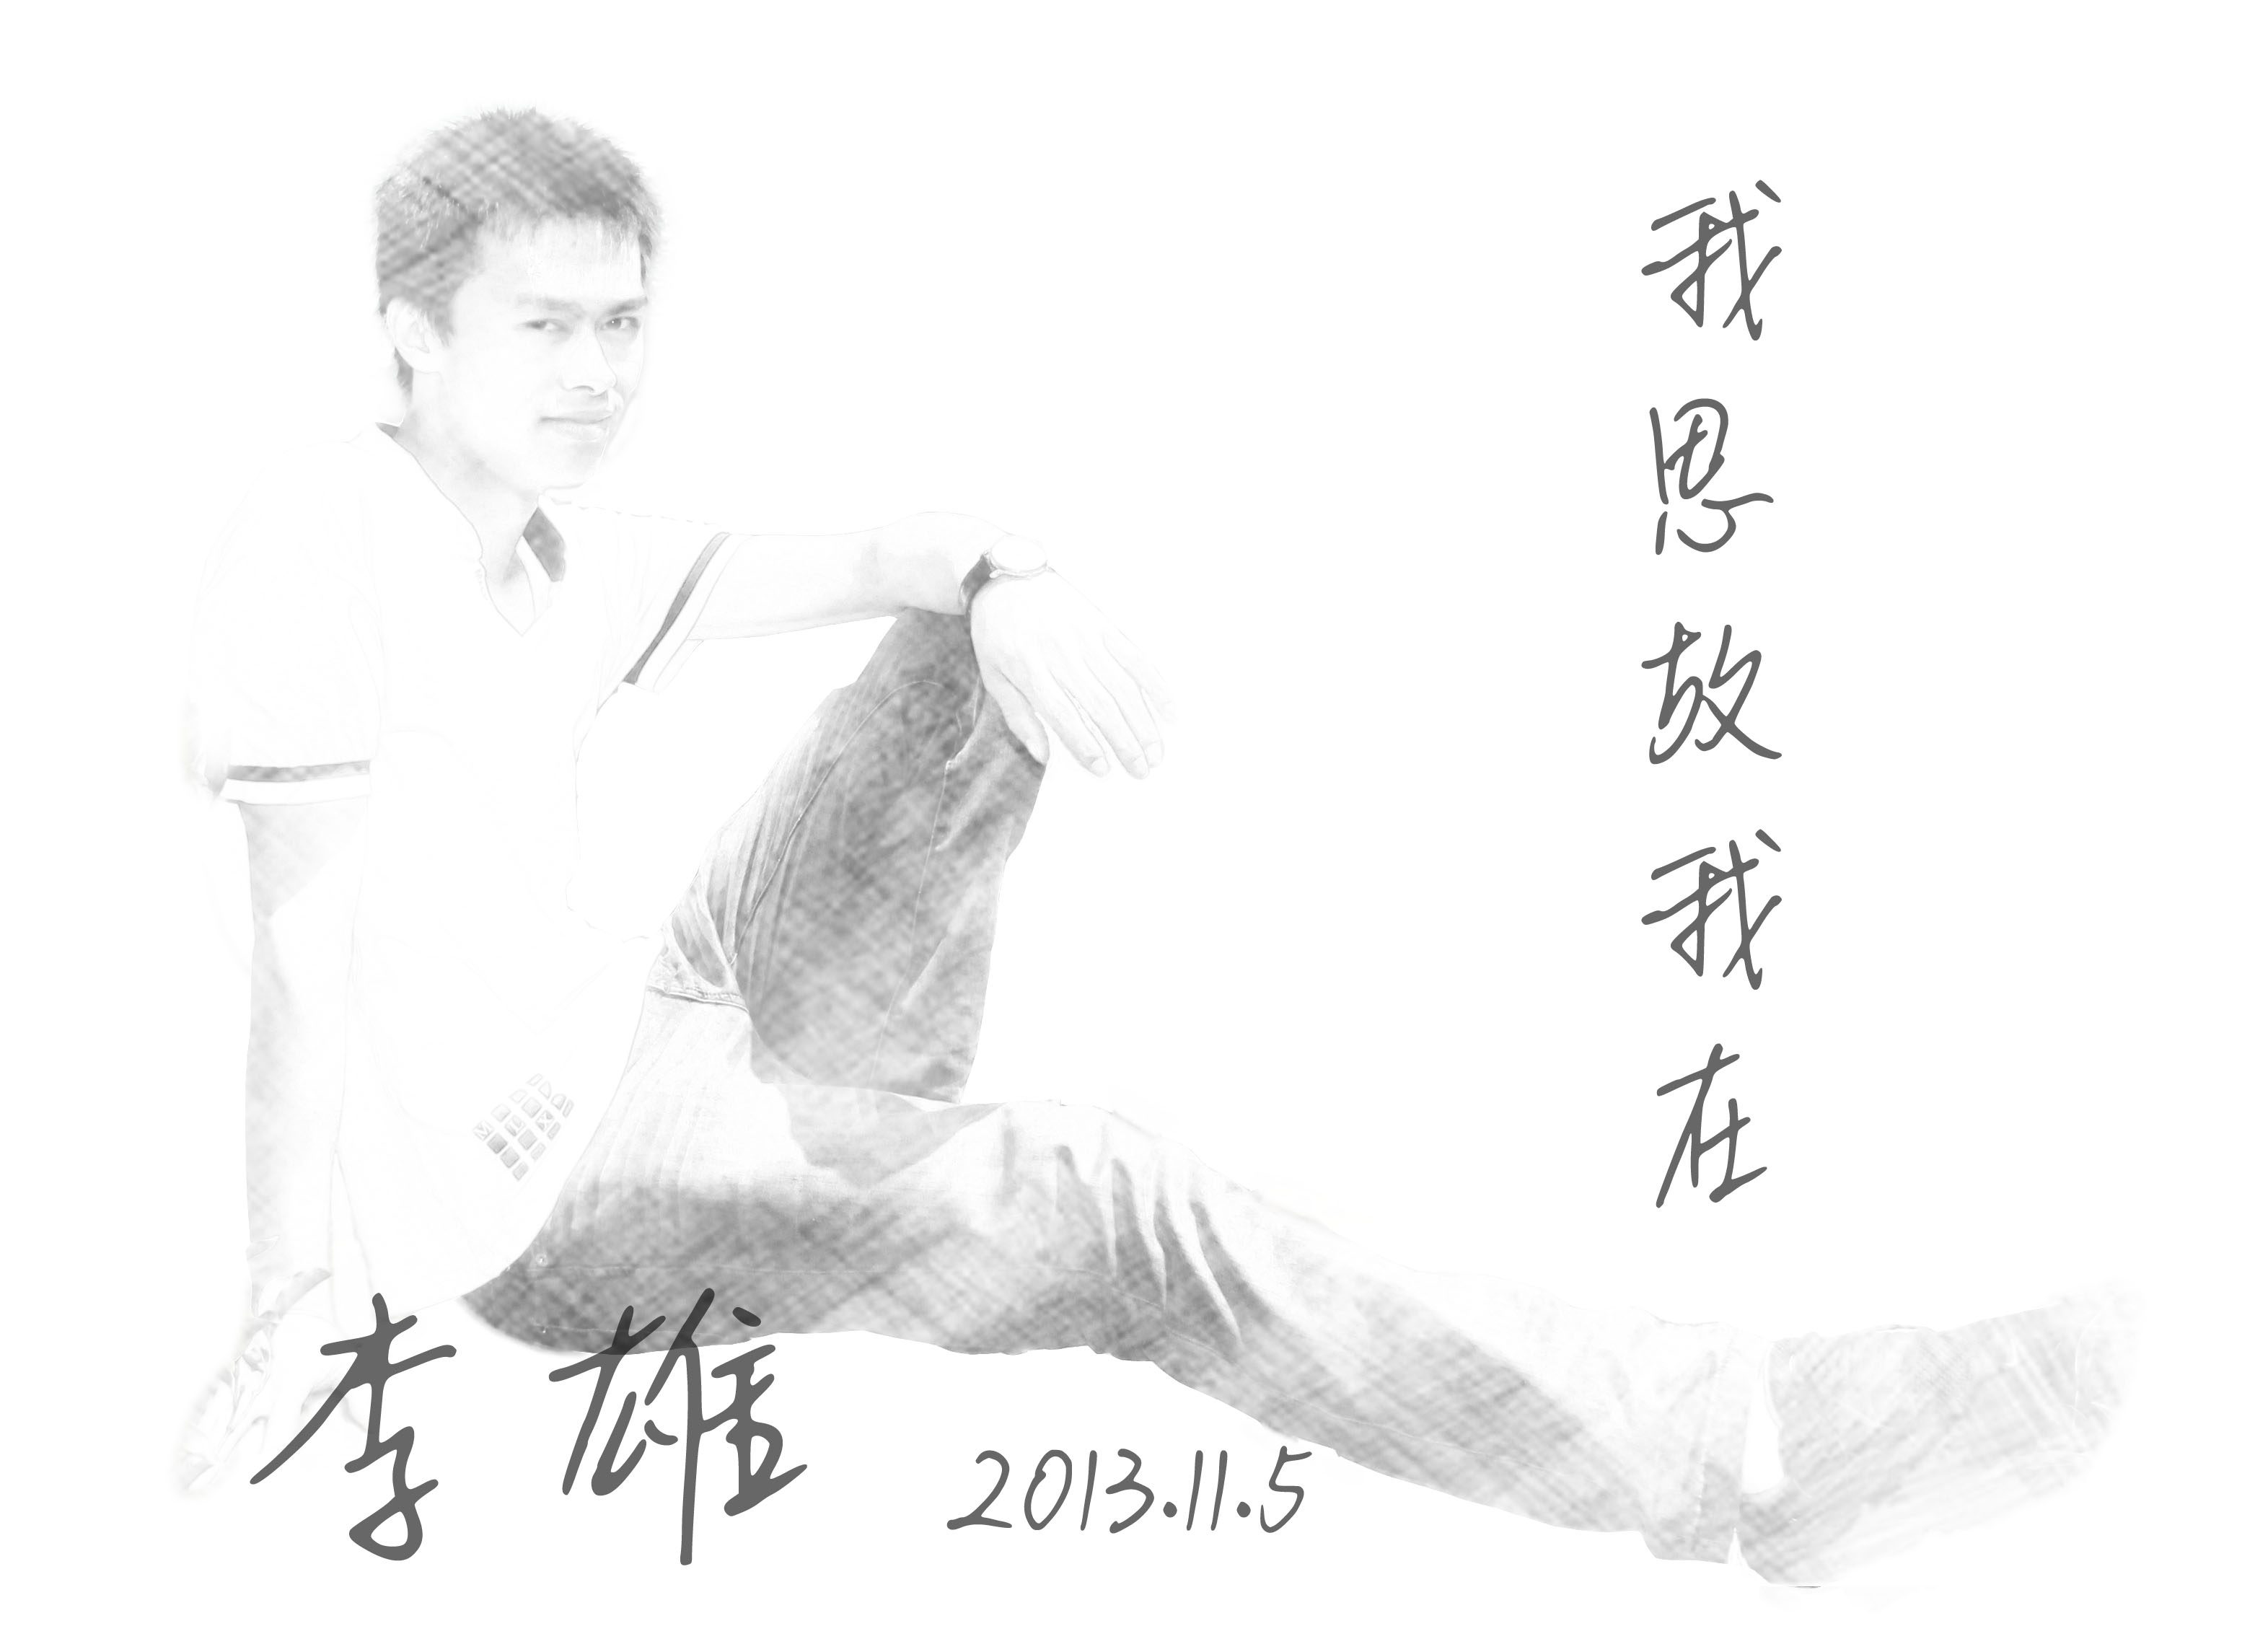 我思故我在
李雄
2013.11.5